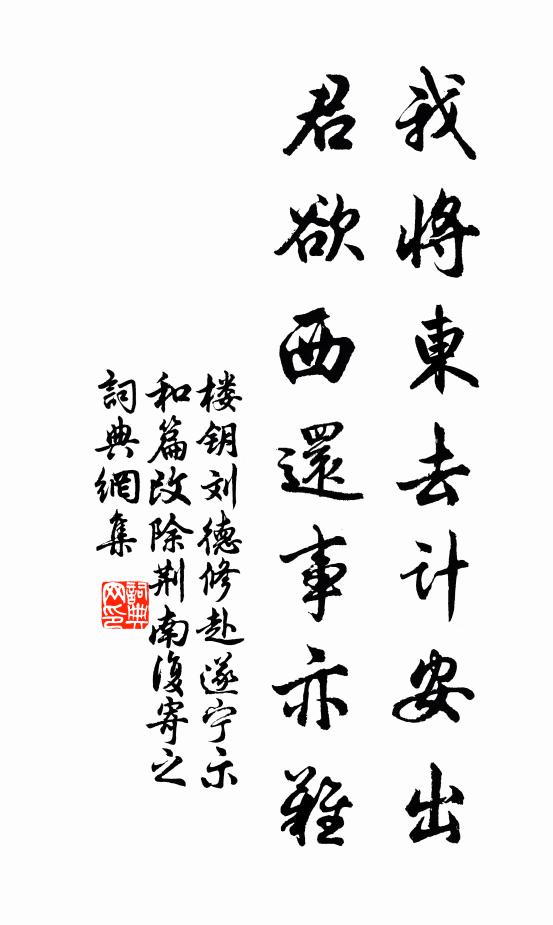 我將東去計安出
君欲西還事亦難
楼钥刘德修赴遂宁示
和篇改除荆南復寄之
詞典網集
詞典网印